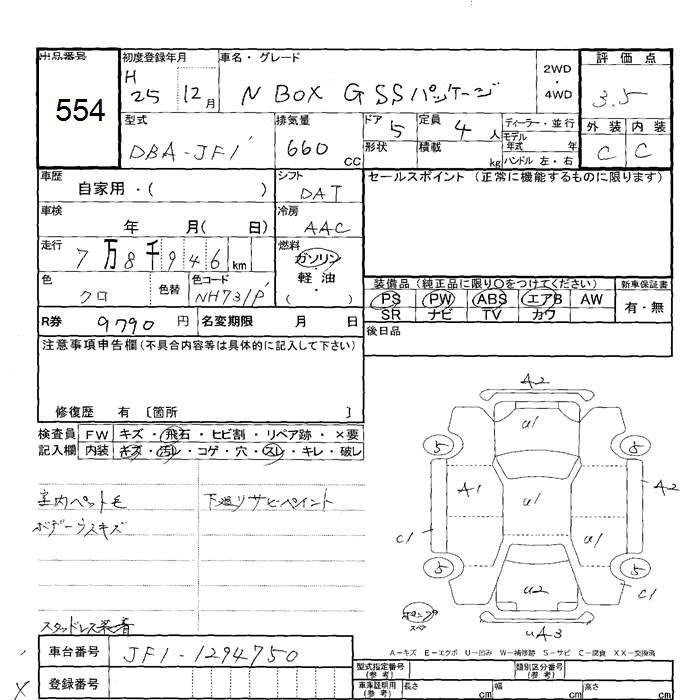 出品番号
554
初度登録年月
H 25 12月
車名・グレード
N BOX G SSパッケージ
2WD
・
4WD
評価点
3.5
外装 内装
C C
型式
DBA-JF1
排気量
660 CC
ドア 5
定員 4人
形状 積載 kg
ディーラー・並行
モデル年式 年
ハンドル 左・右
車歴
自家用・( )
シフト
DAT
セールスポイント (正常に機能するものに限ります)
車検
年 月( 日)
冷房
AAC
走行
7万8千946km
燃料
ガソリン
・
軽・油
・
( )
色
クロ
色替
色コード
NH731P
装備品 (純正品に限り○をつけてください)
新車保証書
PS PW ABS エアB AW
SR ナビ TV カワ
有・無
R券 9790円 名変期限 月 日
後日品
注意事項申告欄(不具合内容等は具体的に記入して下さい)
修復歴 有 〔箇所 〕
検査員記入欄
FW キズ・飛石・ヒビ割・リペア跡・×要
内装 キズ・汚レ・コゲ・穴・スレ・キレ・破レ
室内ペット毛
ボデーウスキズ
下廻りサビペイント
スタッドレス装着
A2
U1
5 5
A1 U1 A2
C1 U1 U1
5 5
U2 C1
スペア
UA3
A-キズ E-エクボ U-凹み W-補修跡 S-サビ C-腐食 XX-交換済
車台番号 JF1-1294750
登録番号
型式指定番号(参考)
類別区分番号(参考)
車庫証明用(参考) 長さ cm 幅 cm 高さ cm
X